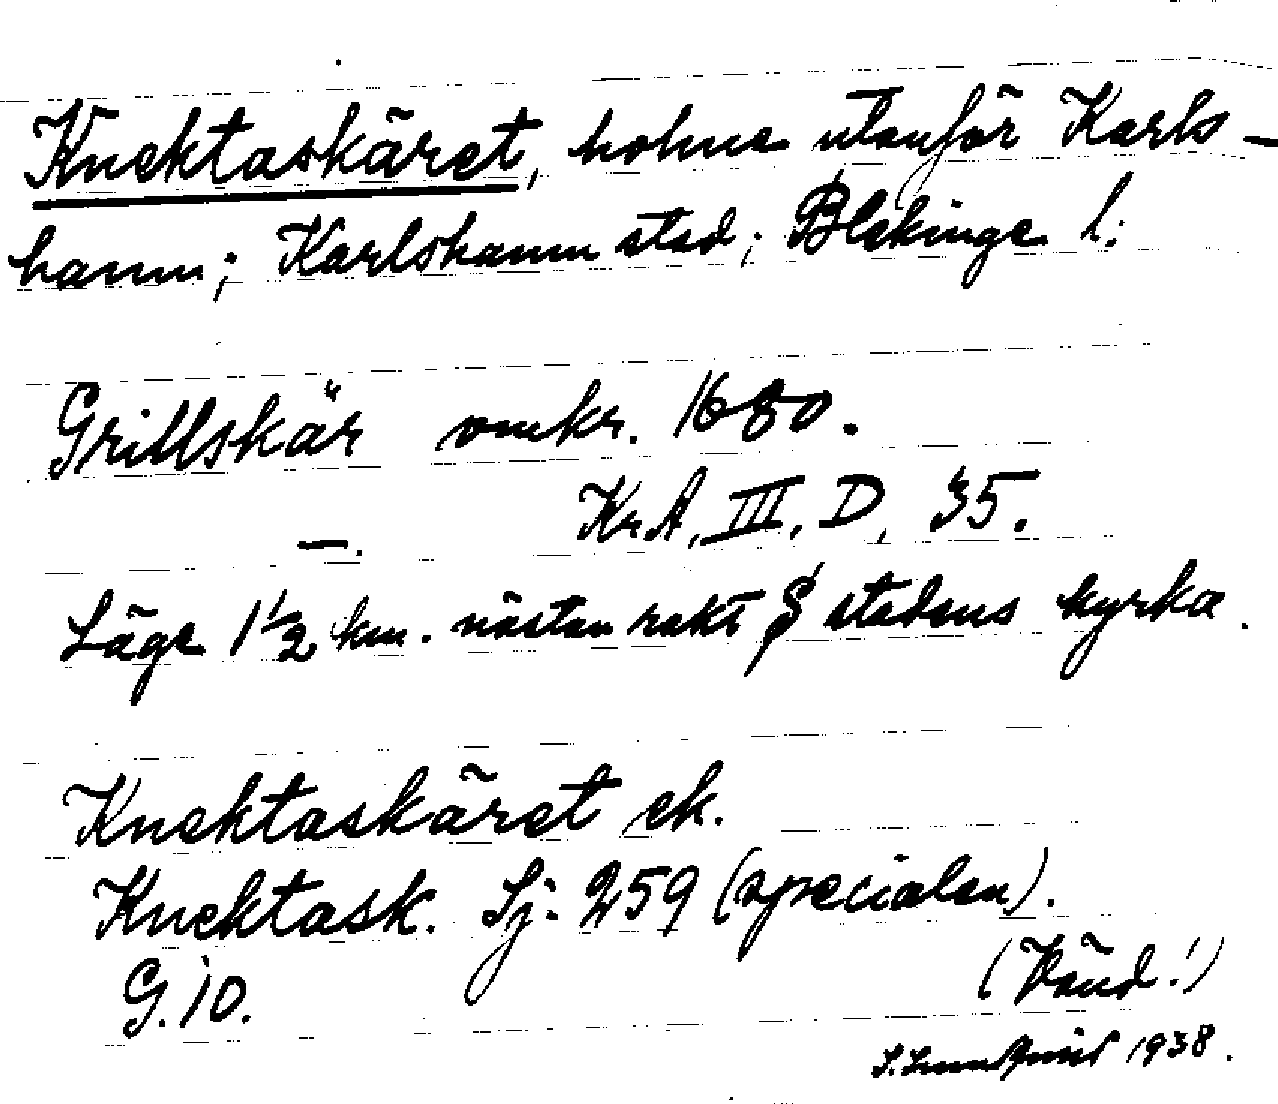 Knektaskäret, holme utanför Karls-
hamn; Karlshamn stad; Blekinge l:
Grillskär omkr. 1680.
—. Kr.A, III, D, 35.
Läge 1 1/2 km. nästan rakt S stadens kyrka.
Knektaskäret ek.
Knektask. Sj. 259 (specialen).
G. 10. (Vänd!)
1938.